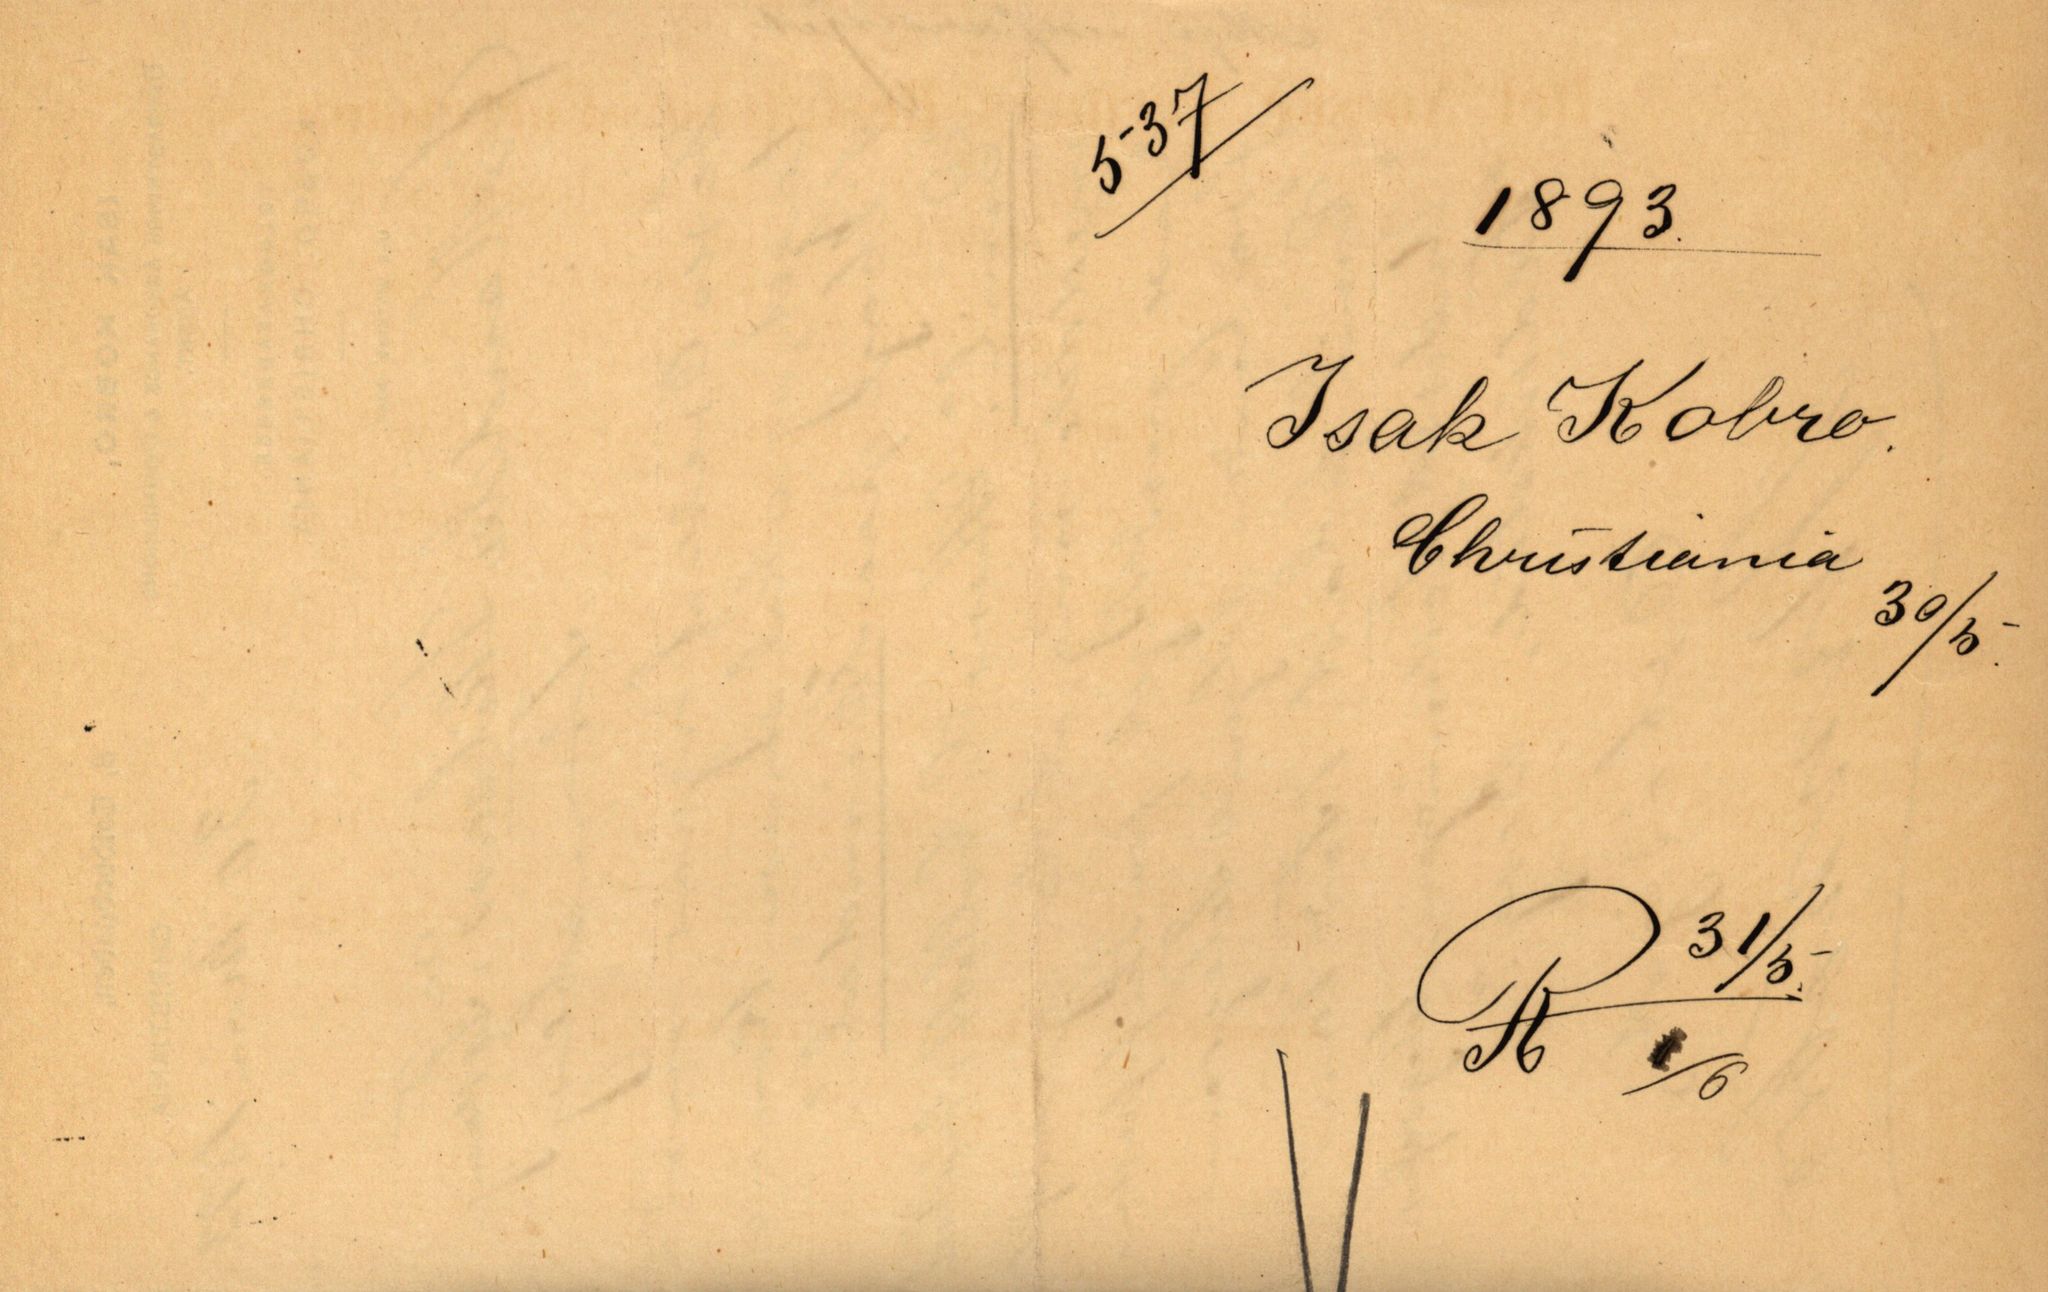 537
1893.
Isak Kobro.
Christiania
30/5.
R 31/5.
K 1/6